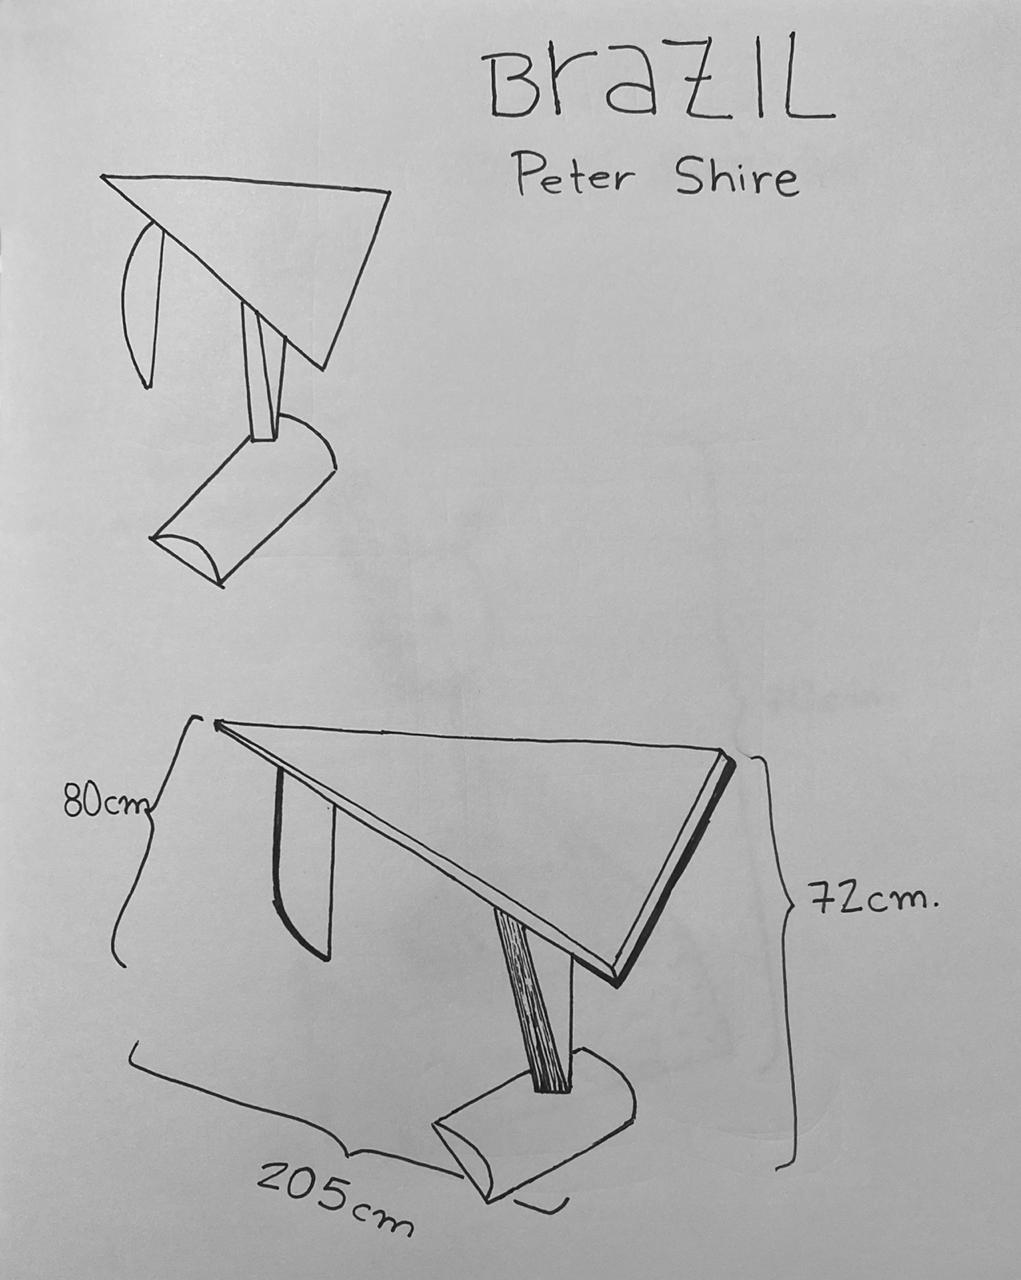 BraZIL
Peter Shire
80cm
72cm.
205cm